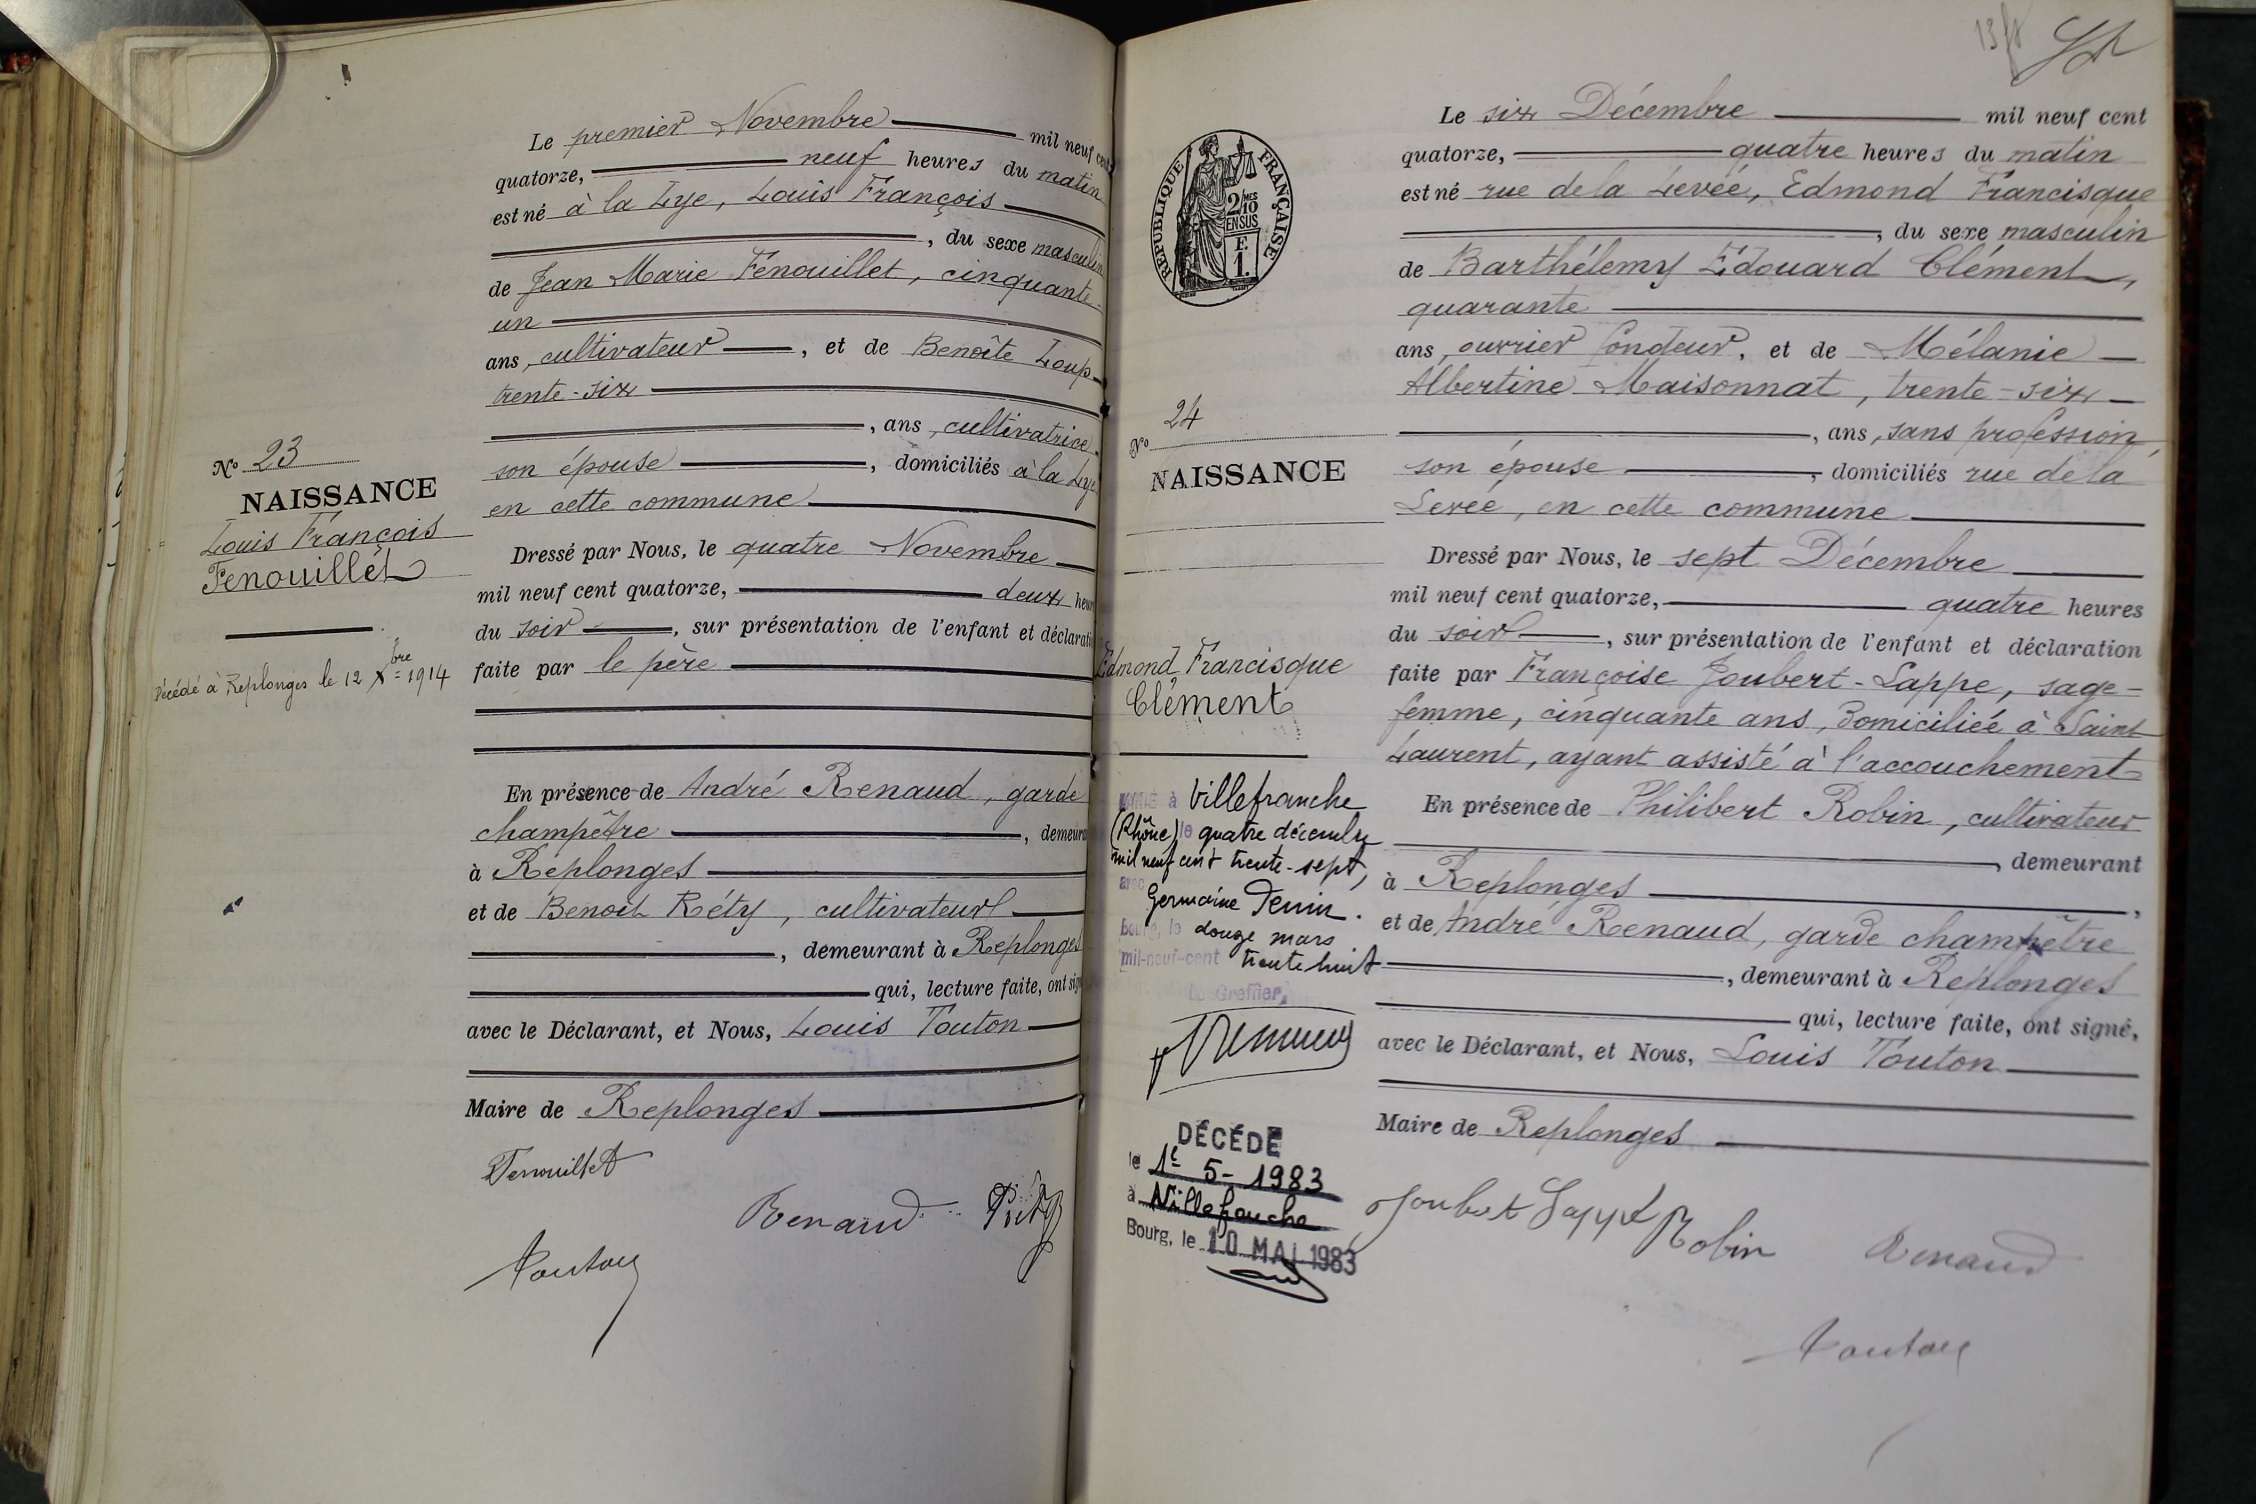 Le premier Novembre mil neuf cent
quatorze, neuf heures du matin
est né à la Lye, Louis François
, du sexe masculin
de Jean Marie Fenouillet, cinquante-
un
ans, cultivateur , et de Benoîte Loup
trente-six
, ans, cultivatrice
son épouse , domiciliés à la Lye
en cette commune
Dressé par Nous, le quatre Novembre
mil neuf cent quatorze, deux heur
du soir , sur présentation de l'enfant et déclarati
faite par le père
En présence de André Renaud, garde
champêtre , demeura
à Replonges
et de Benoit Réty, cultivateur
, demeurant à Replonges
qui, lecture faite, ont sig
avec le Déclarant, et Nous, Louis Touton
Maire de Replonges
Fenouillet
Renaud
Touton
No 23
NAISSANCE
Louis François
Fenouillet
Décédé à Replonges le 12 Xbre 1914
Le six Décembre mil neuf cent
quatorze, quatre heures du matin
est né rue de la Levée, Edmond Francisque
, du sexe masculin
de Barthélemy Edouard Clément,
quarante
ans, ouvrier fondeur, et de Mélanie
Albertine Maisonnat, trente-six
, ans, sans profession,
son épouse , domiciliés rue de la
Levée, en cette commune
Dressé par Nous, le sept Décembre
mil neuf cent quatorze, quatre heures
du soir , sur présentation de l'enfant et déclaration
faite par Françoise Joubert-Lappe, sage-
femme, cinquante ans, domiciliée à Saint
Laurent, ayant assisté à l'accouchement
En présence de Philibert Robin, cultivateur
, demeurant
à Replonges ,
et de André Renaud, garde champêtre
, demeurant à Replonges
qui, lecture faite, ont signé,
avec le Déclarant, et Nous, Louis Touton
Maire de Replonges
Joubert Lappe Robin Renaud
Touton
RÉPUBLIQUE FRANÇAISE
2/10 MES
EN SUS
F
1.
No 24
NAISSANCE
Edmond Francisque
Clément
à Villefranche
(Rhône) le quatre décembre
mil neuf cent trente-sept,
avec
Germaine
Bourg, le douze mars
mil-neuf-cent trente huit
Le Greffier,
DÉCÉDÉ
le 1er 5-1983
à Villefranche
Bourg, le 10 MAI 1983